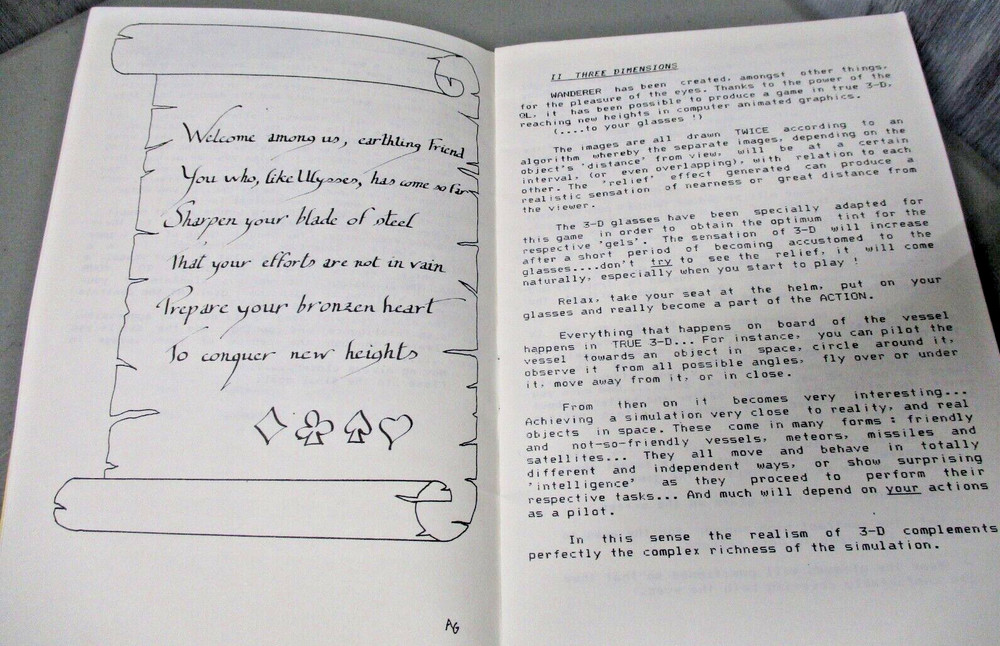 Welcome among us, earthling friend
You who, like Ulysses, has come so far
Sharpen your blade of steel
That your efforts are not in vain
Prepare your bronzen heart
To conquer new heights
AG
II THREE DIMENSIONS
WANDERER has been created, amongst other things,
for the pleasure of the eyes. Thanks to the power of the
QL, it has been possible to produce a game in true 3-D,
reaching new heights in computer animated graphics.
(....to your glasses !)
The images are all drawn TWICE according to an
algorithm whereby the separate images, depending on the
object's 'distance' from view, will be at a certain
interval, (or even overlapping), with relation to each
other. The 'relief' effect generated can produce a
realistic sensation of nearness or great distance from
the viewer.
The 3-D glasses have been specially adapted for
this game in order to obtain the optimum tint for the
respective 'gels'. The sensation of 3-D will increase
after a short period of becoming accustomed to the
glasses....don't try to see the relief, it will come
naturally, especially when you start to play !
Relax, take your seat at the helm, put on your
glasses and really become a part of the ACTION.
Everything that happens on board of the vessel
happens in TRUE 3-D... For instance, you can pilot the
vessel towards an object in space, circle around it,
observe it from all possible angles, fly over or under
it, move away from it, or in close.
From then on it becomes very interesting...
Achieving a simulation very close to reality, and real
objects in space. These come in many forms : friendly
and not-so-friendly vessels, meteors, missiles and
satellites... They all move and behave in totally
different and independent ways, or show surprising
'intelligence' as they proceed to perform their
respective tasks... And much will depend on your actions
as a pilot.
In this sense the realism of 3-D complements
perfectly the complex richness of the simulation.